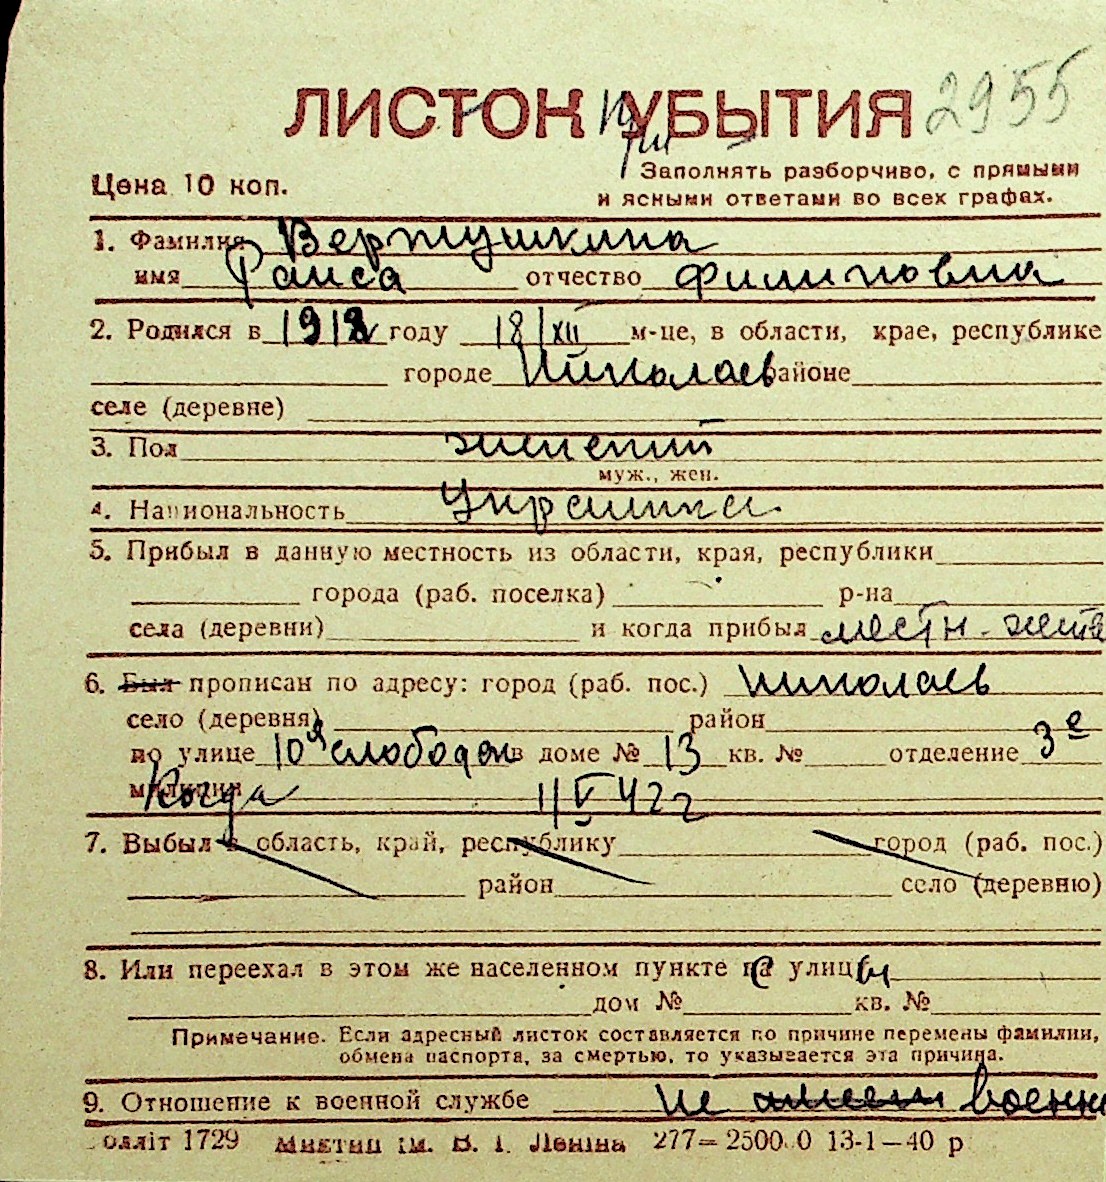 2955
ЛИСТОК УБЫТИЯ
Заполнять разборчиво, с прямыми
Цена 10 коп.
и ясными ответами во всех графах.
1. Фамилия Вертушкина
имя Раиса отчество Филиповна
2. Родился в 1918 году 18/XII м-це, в области, крае, республике
городе Николаев районе
селе (деревне)
3. Пол женский
муж., жен.
4. Национальность Украинка
5. Прибыл в данную местность из области, края, республики
города (раб. поселка) р-на
села (деревни) и когда прибыл местн. жит
6. Был прописан по адресу: город (раб. пос.) Николаев
село (деревня) район
по улице 10я слободск в доме № 13 кв. № отделение 3е
милиции Когда 11/V 42 г
7. Выбыл в область, край, республику город (раб. пос.)
район село (деревню)
8. Или переехал в этом же населенном пункте на улицу
дом № кв. №
Примечание. Если адресный листок составляется по причине перемены фамилии,
обмена паспорта, за смертью, то указывается эта причина.
9. Отношение к военной службе не имеет военн
олліт 1729 Миктип ім. В. І. Леніна 277—2500.0 13-1—40 р